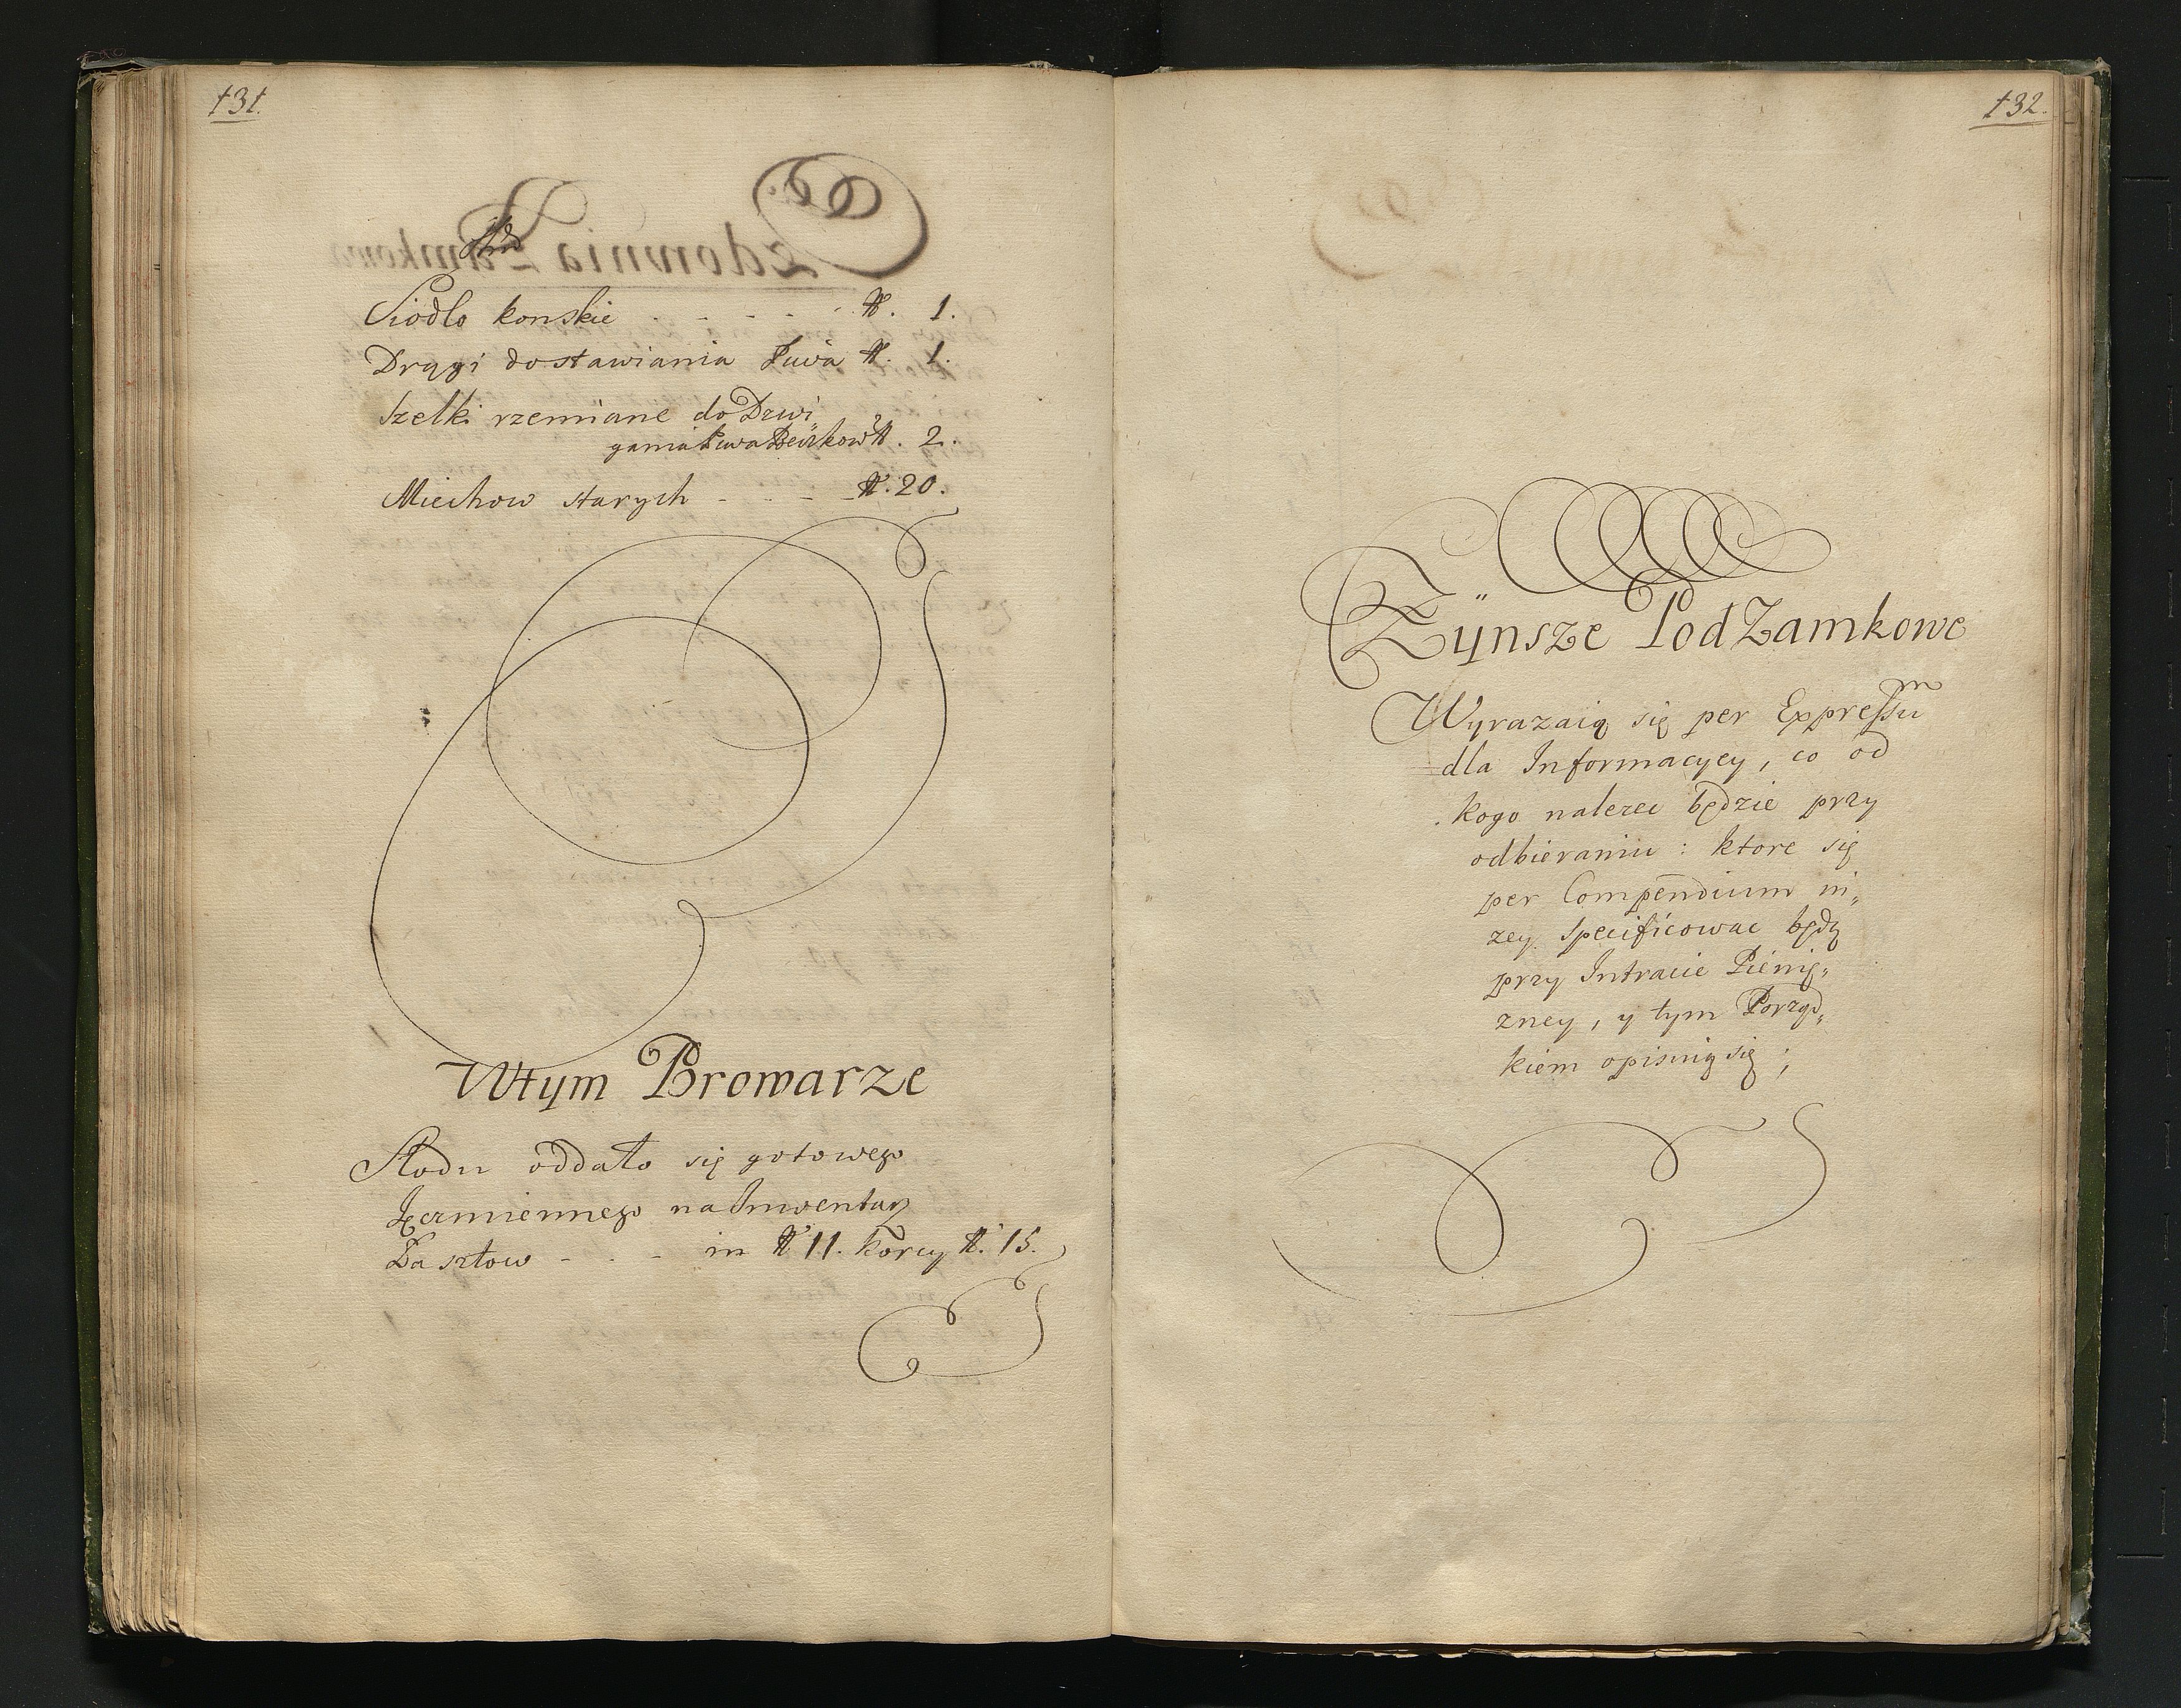 131.
Siodlo konskie - - - - - №. 1.
Drągi do stawiania Piwa №. 1.
Szelki rzemiane do Dzwi
gania Piwa Beczkow №. 2.
Miechow starych - - - №. 20.
Wtym Browarze
Słodu oddało się gotowego
Jęczmiennego na Inwentarz
Zasztow - - - in № 11. Korcy №. 15.
132.
Zÿnsze Pod Zamkowe
Wyrazaią się per Expressum
dla Informacyey, co od
kogo nalezec będzie przy
odbieraniu : ktore się
per Compendium ni„
zey specificowac będą
przy Intracie Pienię„
zney, y tym Porząd„
kiem opisuią się ;